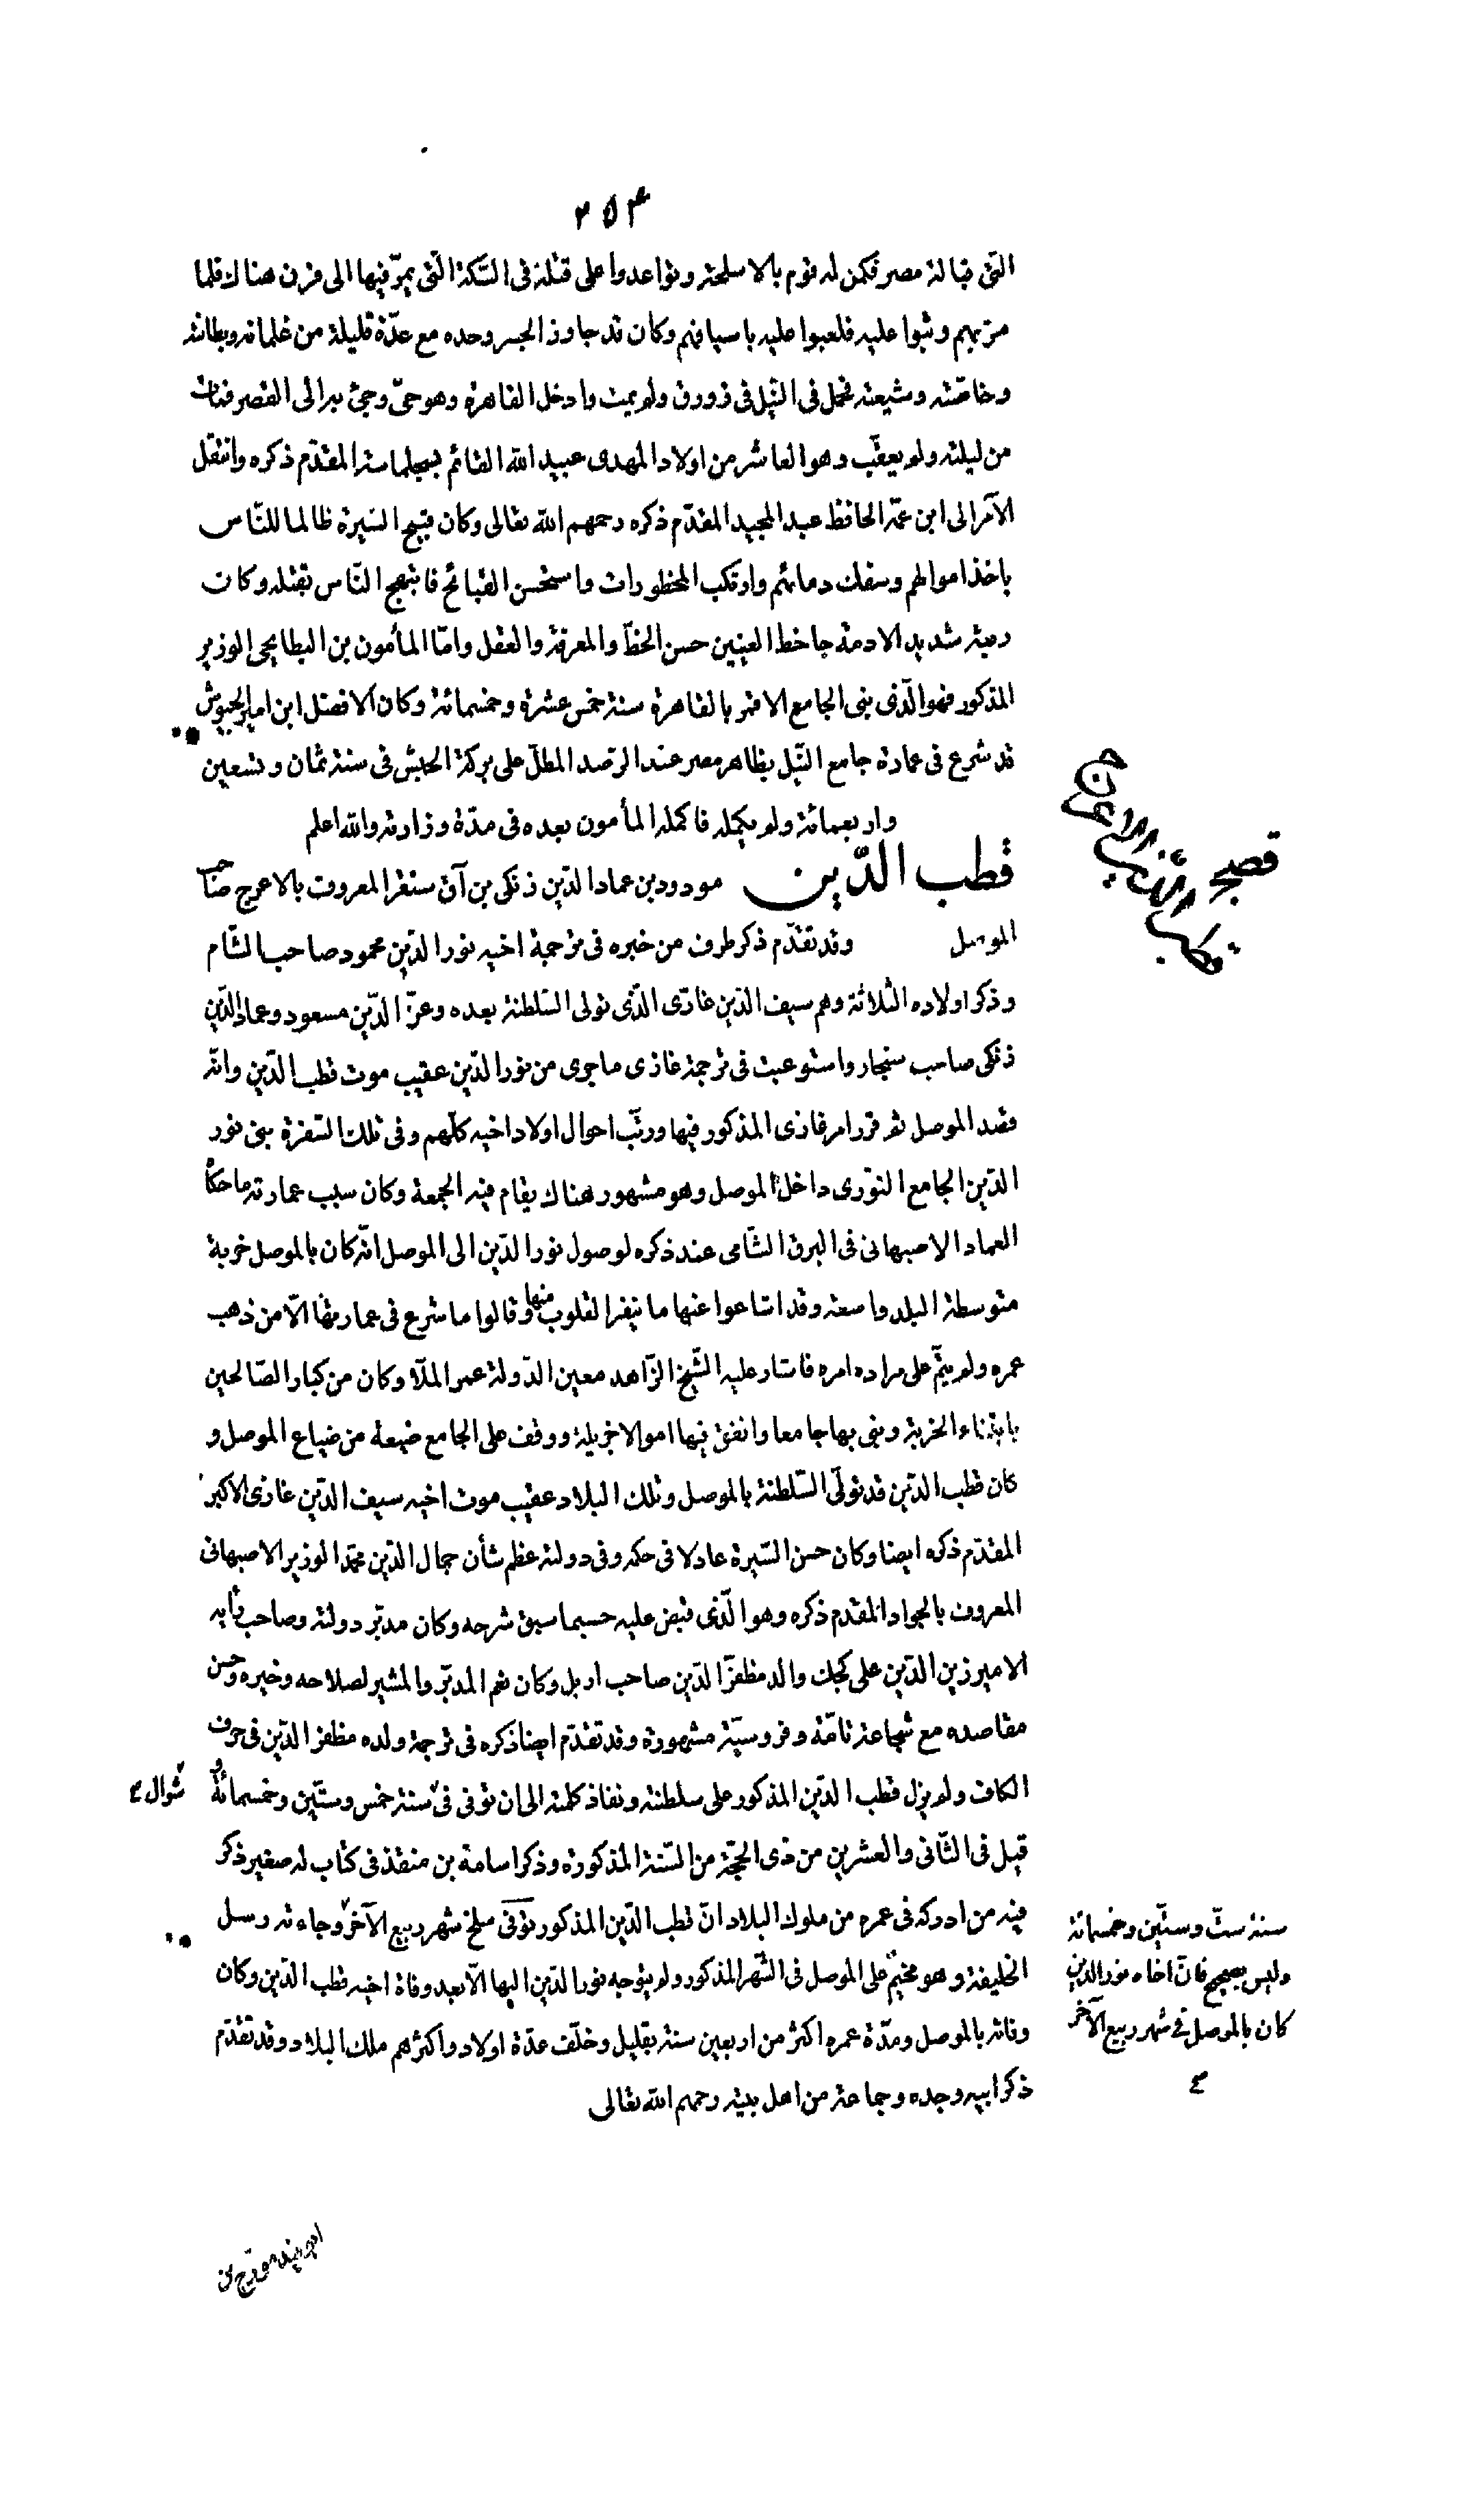 ٢٥٣
التى قبالة مصر فكمن له قوم بالاسلحة وتواعدوا على قتله فى السّكة التى يمرّ فيها الى فرن هناك فلما
مرّ بهم وثبوا عليه فلعبوا عليه باسيافهم وكان قد جاوز الجسر وحده مع عدّة قليلة من غلمانه وبطانته
وخاصّته وشيعته فحمل فى النيل فى زورق ولم يمت وادخل القاهرة وهو حىّ وجئ به الى القصر فمات
من ليلته ولم يعقّب وهو العاشر من اولاد المهدى عبيد الله القائم بسجلماسة المقدّم ذكره وانتقل
الآمر الى ابن عمّه الحافظ عبد المجيد المقدّم ذكره رحمهم الله تعالى وكان قبيح السّيرة ظالما للنّاس
باخذ اموالهم وسفك دمائهم وارتكب المحظورات واستحسن القبائح فابتهج النّاس بقتله وكان
ربعة شديد الادمة جاحظ العينين حسن الخطّ والمعرفة والعقل وامّا المأمون بن البطايحى الوزير
المذكور فهو الّذى بنى الجامع الاقمر بالقاهرة سنة خمس عشرة وخمسمائة وكان الافضل ابن امير الجيوش
قد شرع فى عمارة جامع النّيل بظاهر مصر عند الرّصد المطلّ على بركة الحبش فى سنة ثمان وتسعين
واربعمائة ولم يكمله فاكمله المأمون بعده فى مدّة وزارته والله اعلم
قطب الدّين مودود بن عماد الدّين زنكى بن آق سنقر المعروف بالاعرج صاحب
الموصل وقد تقدّم ذكر طرف من خبره فى ترجمة اخيه نور الدّين محمود صاحب الشّام
وذكر اولاده الثلاثة وهم سيف الدّين غازى الّذى تولى السّلطنة بعده وعزّ الدّين مسعود وعماد الدّين
زنكى صاحب سنجار واستوعبت فى ترجمة غازى ما جرى من نور الدّين عقيب موت قطب الدّين وانّه
قصد الموصل ثم قرر امر غازى المذكور فيها ورتّب احوال اولاد اخيه كلّهم وفى تلك السّفرة بنى نور
الدّين الجامع النّورى داخل الموصل وهو مشهور هناك يقام فيه الجمعة وكان سبب عمارته ما حكاه
العماد الاصبهانى فى البرق الشّامى عند ذكره لوصول نور الدّين الى الموصل انّه كان بالموصل خربة
متوسطة البلد واسعة وقد اشاعوا عنها ما ينفر القلوب منها وقالوا ما شرع فى عمارتها الّا من ذهب
عمره ولم يتمّ على مراده امره فاشار عليه الشّيخ الزّاهد معين الدّولة عمر الملّا وكان من كبار الصّالحين
بابتناء الخربة وبنى بها جامعا وانفق فيها اموالا جزيلة ووقف على الجامع ضيعة من ضياع الموصل و
كان قطب الدّين قد تولّى السّلطنة بالموصل وتلك البلاد عقيب موت اخيه سيف الدّين غازى الاكبر
المقدّم ذكره ايضا وكان حسن السّيرة عادلا فى حكمه وفى دولته عظم شأن جمال الدّين محمّد الوزير الاصبهانى
المعروف بالجواد المقدم ذكره وهو الّذى قبض عليه حسبما سبق شرحه وكان مدبّر دولته وصاحب رأيه
الامير زين الدّين على كجك والد مظفّر الدّين صاحب اربل وكان نعم المدبّر والمشير لصلاحه وخيره وحسن
مقاصده مع شجاعة تامّة وفروسيّة مشهورة وقد تقدّم ايضا ذكره فى ترجمة ولده مظفر الدّين فى حرف
الكاف ولم يزل قطب الدّين المذكور على سلطنته ونفاذ كلمته الى ان توفى فى سنة خمس وستّين وخمسمائة و
شوال
قيل فى الثّانى والعشرين من ذى الحجّة من السّنة المذكورة وذكر اسامة بن منقذ فى كتاب له صغير ذكر
فيه من ادركه فى عمره من ملوك البلاد انّ قطب الدّين المذكور توفى سلخ شهر ربيع الآخر وجاءته رسل
الخليفة وهو مخيّم على الموصل فى الشّهر المذكور ولم يتوجه نور الدّين اليها الّا بعد وفاة اخيه قطب الدّين وكان
وفاته بالموصل ومدّة عمره اكثر من اربعين سنة بقليل وخلّف عدّة اولاد واكثرهم ملك البلاد وقد تقدّم
ذكر ابيه وجده وجماعة من اهل بيته رحمهم الله تعالى
سنة ستّ وستّين وخمسمائة
وليس بصحيح فانّ اخاه نور الدّين
كان بالموصل فى شهر ربيع الآخر